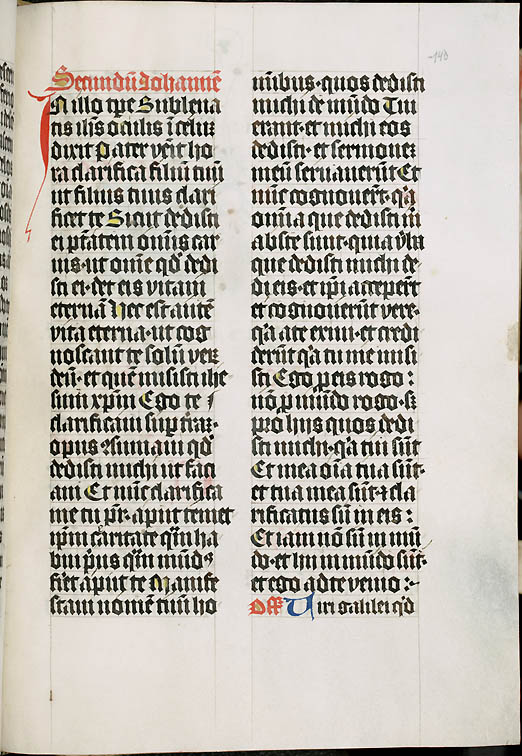 Secundū Iohannē
In illo tp̄e Subleua
tis ih̄s oculis ī celuȝ
dixit Pater venit ho
ra clarifica filiū tuū
ut filius tuus clari
ficet te Sicut dedisti
ei ptātem omnis car
nis·ut om̄e qd̄ dedi
sti ei·det eis vitam
eternā Hec est autē
vita eterna·ut cog
noscant te solū verū
deū·et quē misisti ihe
sum xp̄m Ego te
clarificaui sup terrā·
opus ꝯsumaui qd̄
dedisti michi ut faci
am Et nūc clarifica
me tu pr̄·aput temet
ip̄m claritate quā ha
bui priꝰ q̄m mūdꝰ
fieret aput te Manife
staui nomē tuū ho
minibus·quos dedisti
michi de mūdo Tui
erant·et michi eos
dedisti·et sermonem
meū seruauerūt Et
nūc cognouerūt·qia
om̄ia que dedisti m̄
abste sunt·quia v̄ba
que dedisti michi de
di eis·et ip̄i acceperūt
et cognouerūt vere·
qia ate exiui·et credi
derūt qia tu me misi
sti Ego p eis rogo :
nō p mūdo rogo·sꝫ
pro hijs quos dedi
sti michi·qia tui sūt
Et mea oīa tua sūt·
et tua mea sūt·⁊ cla
rificatus sū in eis :
Et iam nō sū in mū
do·et hii in mūdo sūt·
et ego ad te venio :
Off Viri galilei qd̄
140